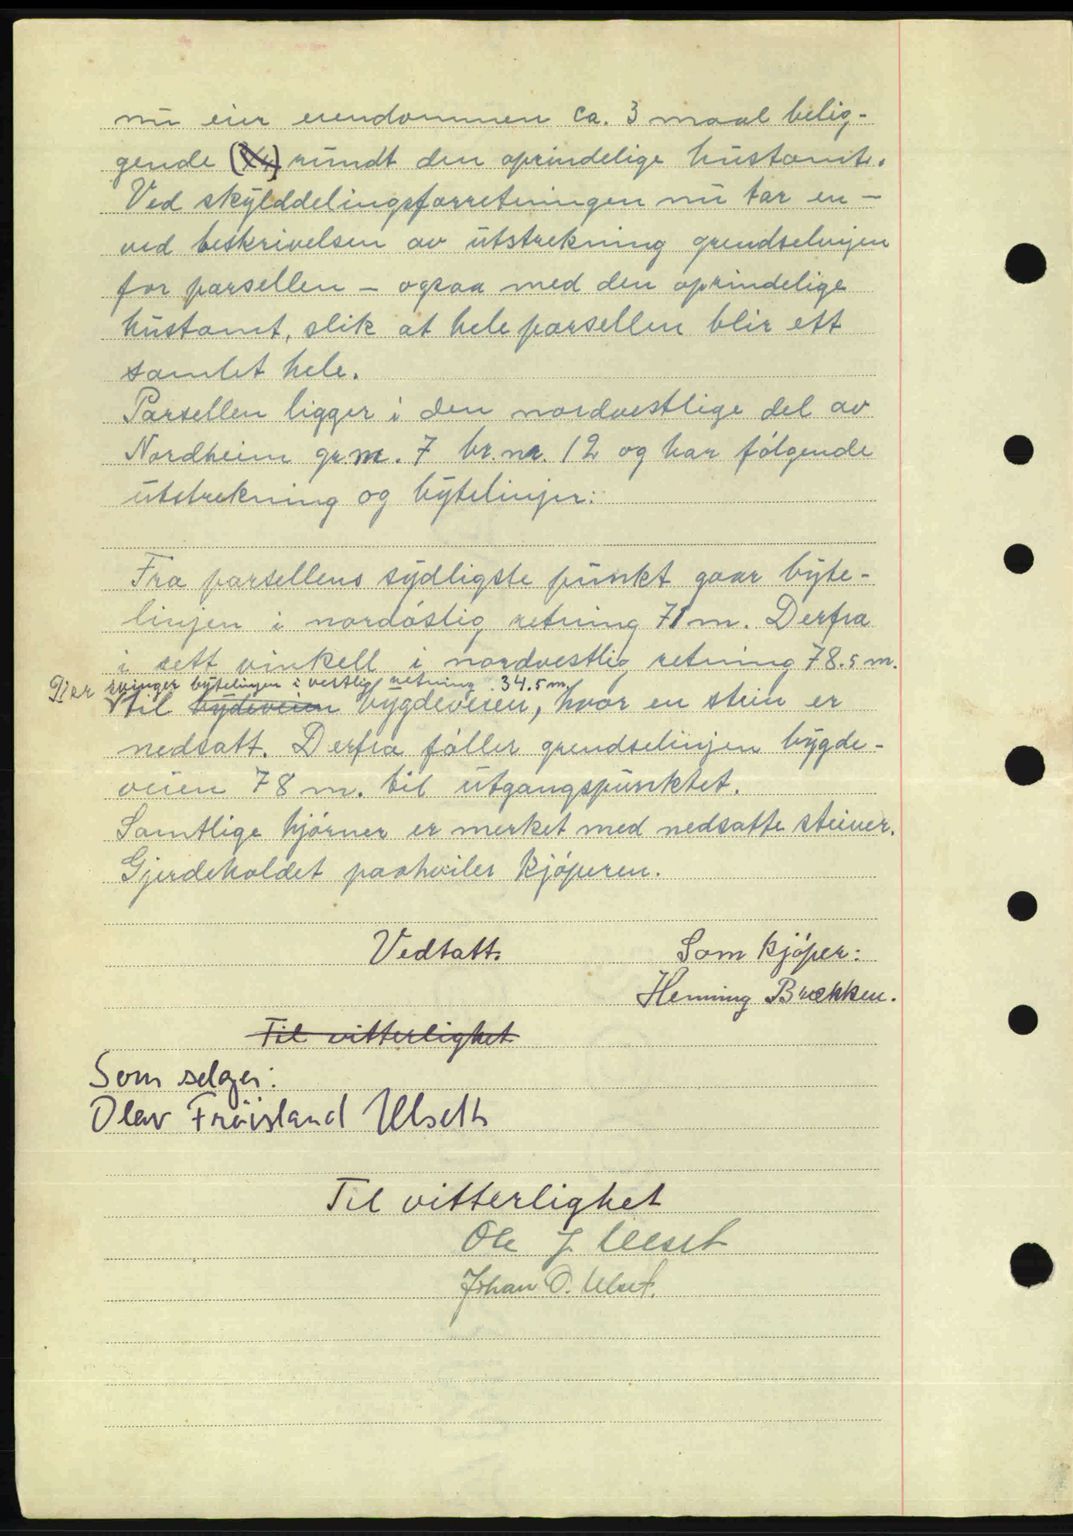 nu eier eiendommen ca. 3 maal belig-
gende rundt den oprindelige hustomt.
Ved skylddelingsforretningen nu tar en –
ved beskrivelsen av utstrekning grendselinjen
for parsellen – ogsaa med den oprindelige
hustomt, slik at hele parsellen blir ett
samlet hele.
Parsellen ligger i den nordvestlige del av
Nordheim gr.nr. 7 br.nr. 12 og har følgende
utstrekning og bytelinjer:
Fra parsellens sydligste punkt gaar byte-
linjen i nordøstlig retning 71 m. Derfra
i rett vinkell i nordvestlig retning 78.5 m.
Der svinger bytelinjen i vestlig retning 34.5 m.
til bydeveien bygdeveien, hvor en stein er
nedsatt. Derfra føller grendselinjen bygde-
veien 78 m. til utgangspunktet.
Samtlige hjørner er merket med nedsatte steiner.
Gjerdeholdet paahviler kjøperen.
Vedtatt.
Som kjøper:
Henning Brækken.
Til vitterlighet
Som selger:
Olav Frøisland Ulseth
Til vitterlighet
Ole J. Ulset
Johan O. Ulset.